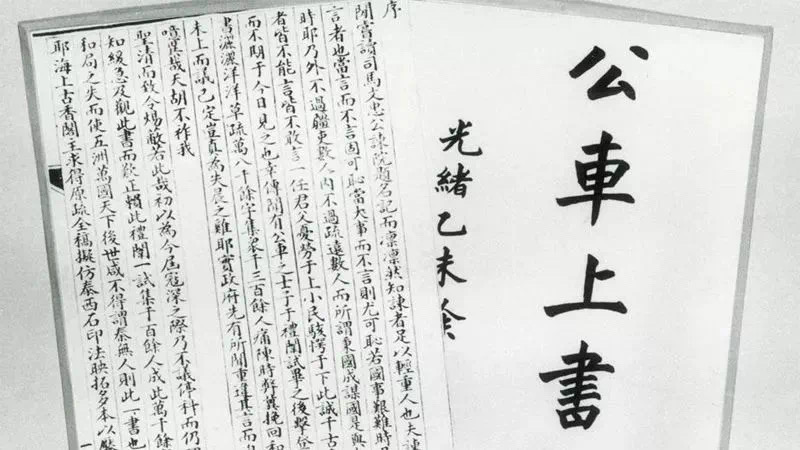 公車上書
光緒乙未
序
聞嘗讀司馬文忠公諫院題名記而凛凛然知諫者足以輕重人也夫諫
言者也當言而不言固可恥當大事而不言則尤可恥若國事艱難時
時耶乃外不過疆吏數人內不過疏遠數人而所謂秉國成謀國是與
者皆不能言皆不敢言一任君父憂勞于上小民駭愕于下此誠千古
而不期于今日見之也幸傳聞有公車之士子于禮闈試畢之後擊登
書灑灑洋洋草疏萬八千餘字集眾千三百餘人痛陳時弊冀挽回和
未上而議已定豈真為失晨之雞耶實政府先有所聞重違其言而
噫異哉天胡不祚我
聖清而致令煬蔽若此哉初以為今屆寇深之際乃不議停科而仍
知緩急及觀此書而歎正賴此禮闈一試集千百餘人成此萬千餘
和局之失而使五洲萬國天下後世咸不得謂秦無人則此一書也
耶海上古香閣主求得原疏全稿擬仿泰西石印法映拓多本以